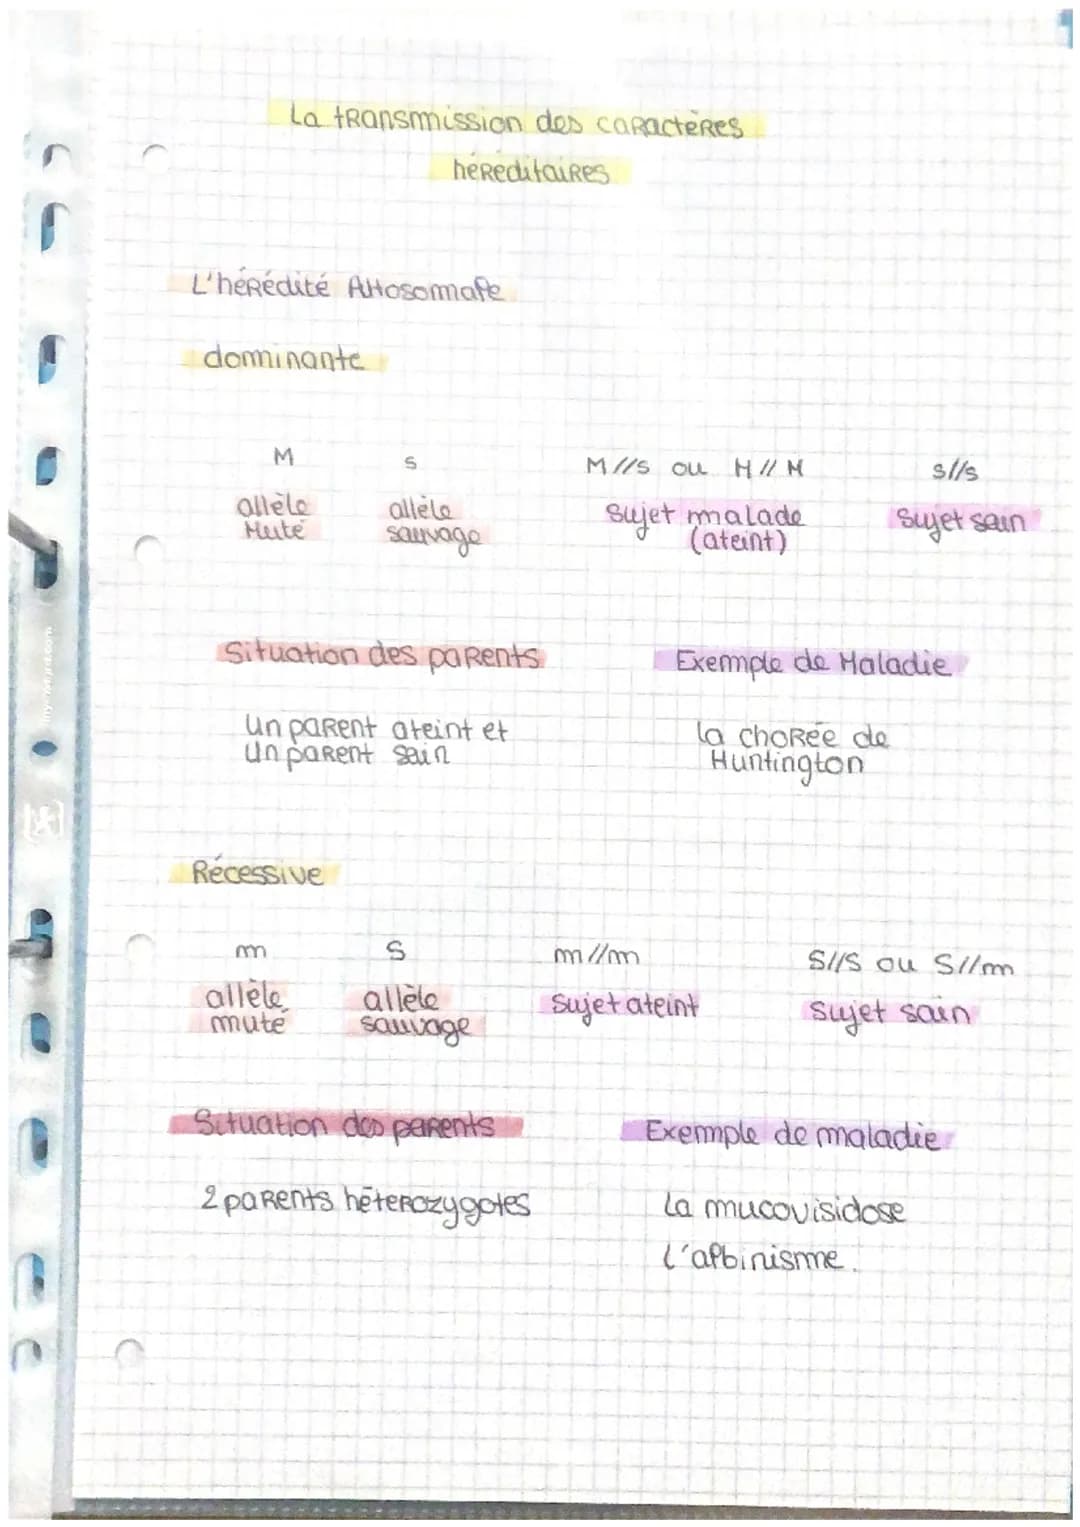 La transmission des caractères
héréditaires
L'hérédité Autosomale
dominante
M s M//s ou M//M s//s
allèle Muté allèle sauvage sujet malade (ateint) sujet sain
Situation des parents Exemple de Maladie
Un parent ateint et la chorée de
Un parent sain Huntington
Récessive
m S m//m S//S ou S//m
allèle muté allèle sauvage sujet ateint sujet sain
Situation des parents Exemple de maladie
2 parents hétérozygotes La mucovisidose
L'albinisme.